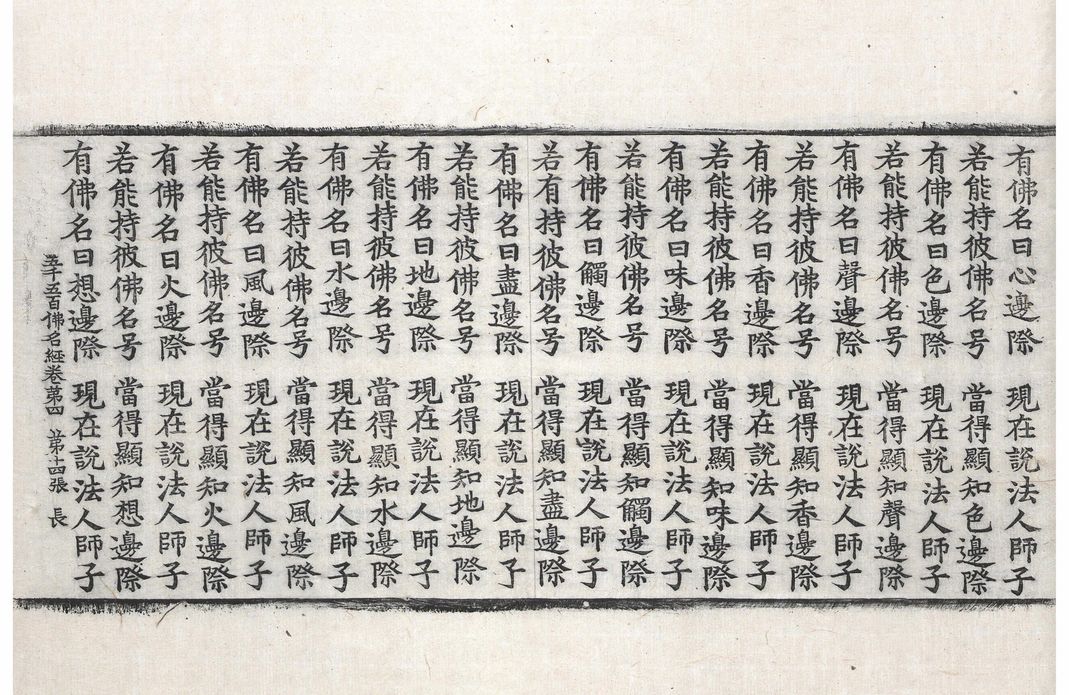 有佛名曰心邊際 現在說法人師子
若能持彼佛名号 當得顯知色邊際
有佛名曰色邊際 現在說法人師子
若能持彼佛名号 當得顯知聲邊際
有佛名曰聲邊際 現在說法人師子
若能持彼佛名号 當得顯知香邊際
有佛名曰香邊際 現在說法人師子
若能持彼佛名号 當得顯知味邊際
有佛名曰味邊際 現在說法人師子
若能持彼佛名号 當得顯知觸邊際
有佛名曰觸邊際 現在說法人師子
若有持彼佛名号 當得顯知盡邊際
有佛名曰盡邊際 現在說法人師子
若能持彼佛名号 當得顯知地邊際
有佛名曰地邊際 現在說法人師子
若能持彼佛名号 當得顯知水邊際
有佛名曰水邊際 現在說法人師子
若能持彼佛名号 當得顯知風邊際
有佛名曰風邊際 現在說法人師子
若能持彼佛名号 當得顯知火邊際
有佛名曰火邊際 現在說法人師子
若能持彼佛名号 當得顯知想邊際
有佛名曰想邊際 現在說法人師子
五千五百佛名經卷第四 第十四張 長